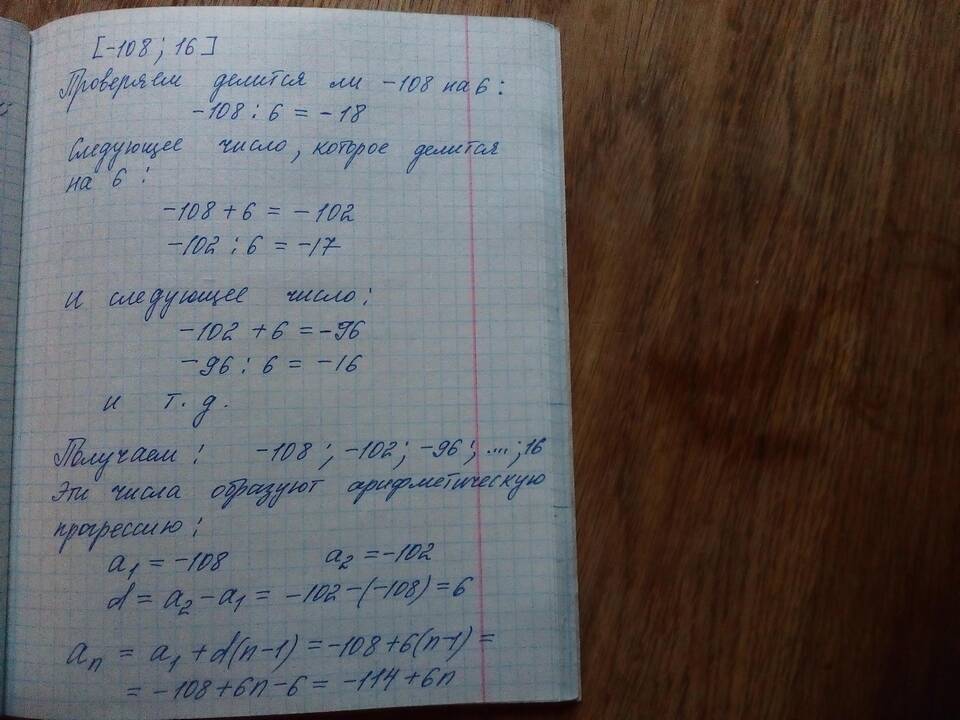 [-108; 16]
Проверяем делится ли -108 на 6:
-108 : 6 = -18
Следующее число, которое делится
на 6:
-108 + 6 = -102
-102 : 6 = -17
И следующее число:
-102 + 6 = -96
-96 : 6 = -16
и т. д.
Получаем: -108; -102; -96; ....; 16
Эти числа образуют арифметическую
прогрессию:
a₁ = -108 a₂ = -102
d = a₂ - a₁ = -102 - (-108) = 6
aₙ = a₁ + d(n-1) = -108 + 6(n-1) =
= -108 + 6n - 6 = -114 + 6n